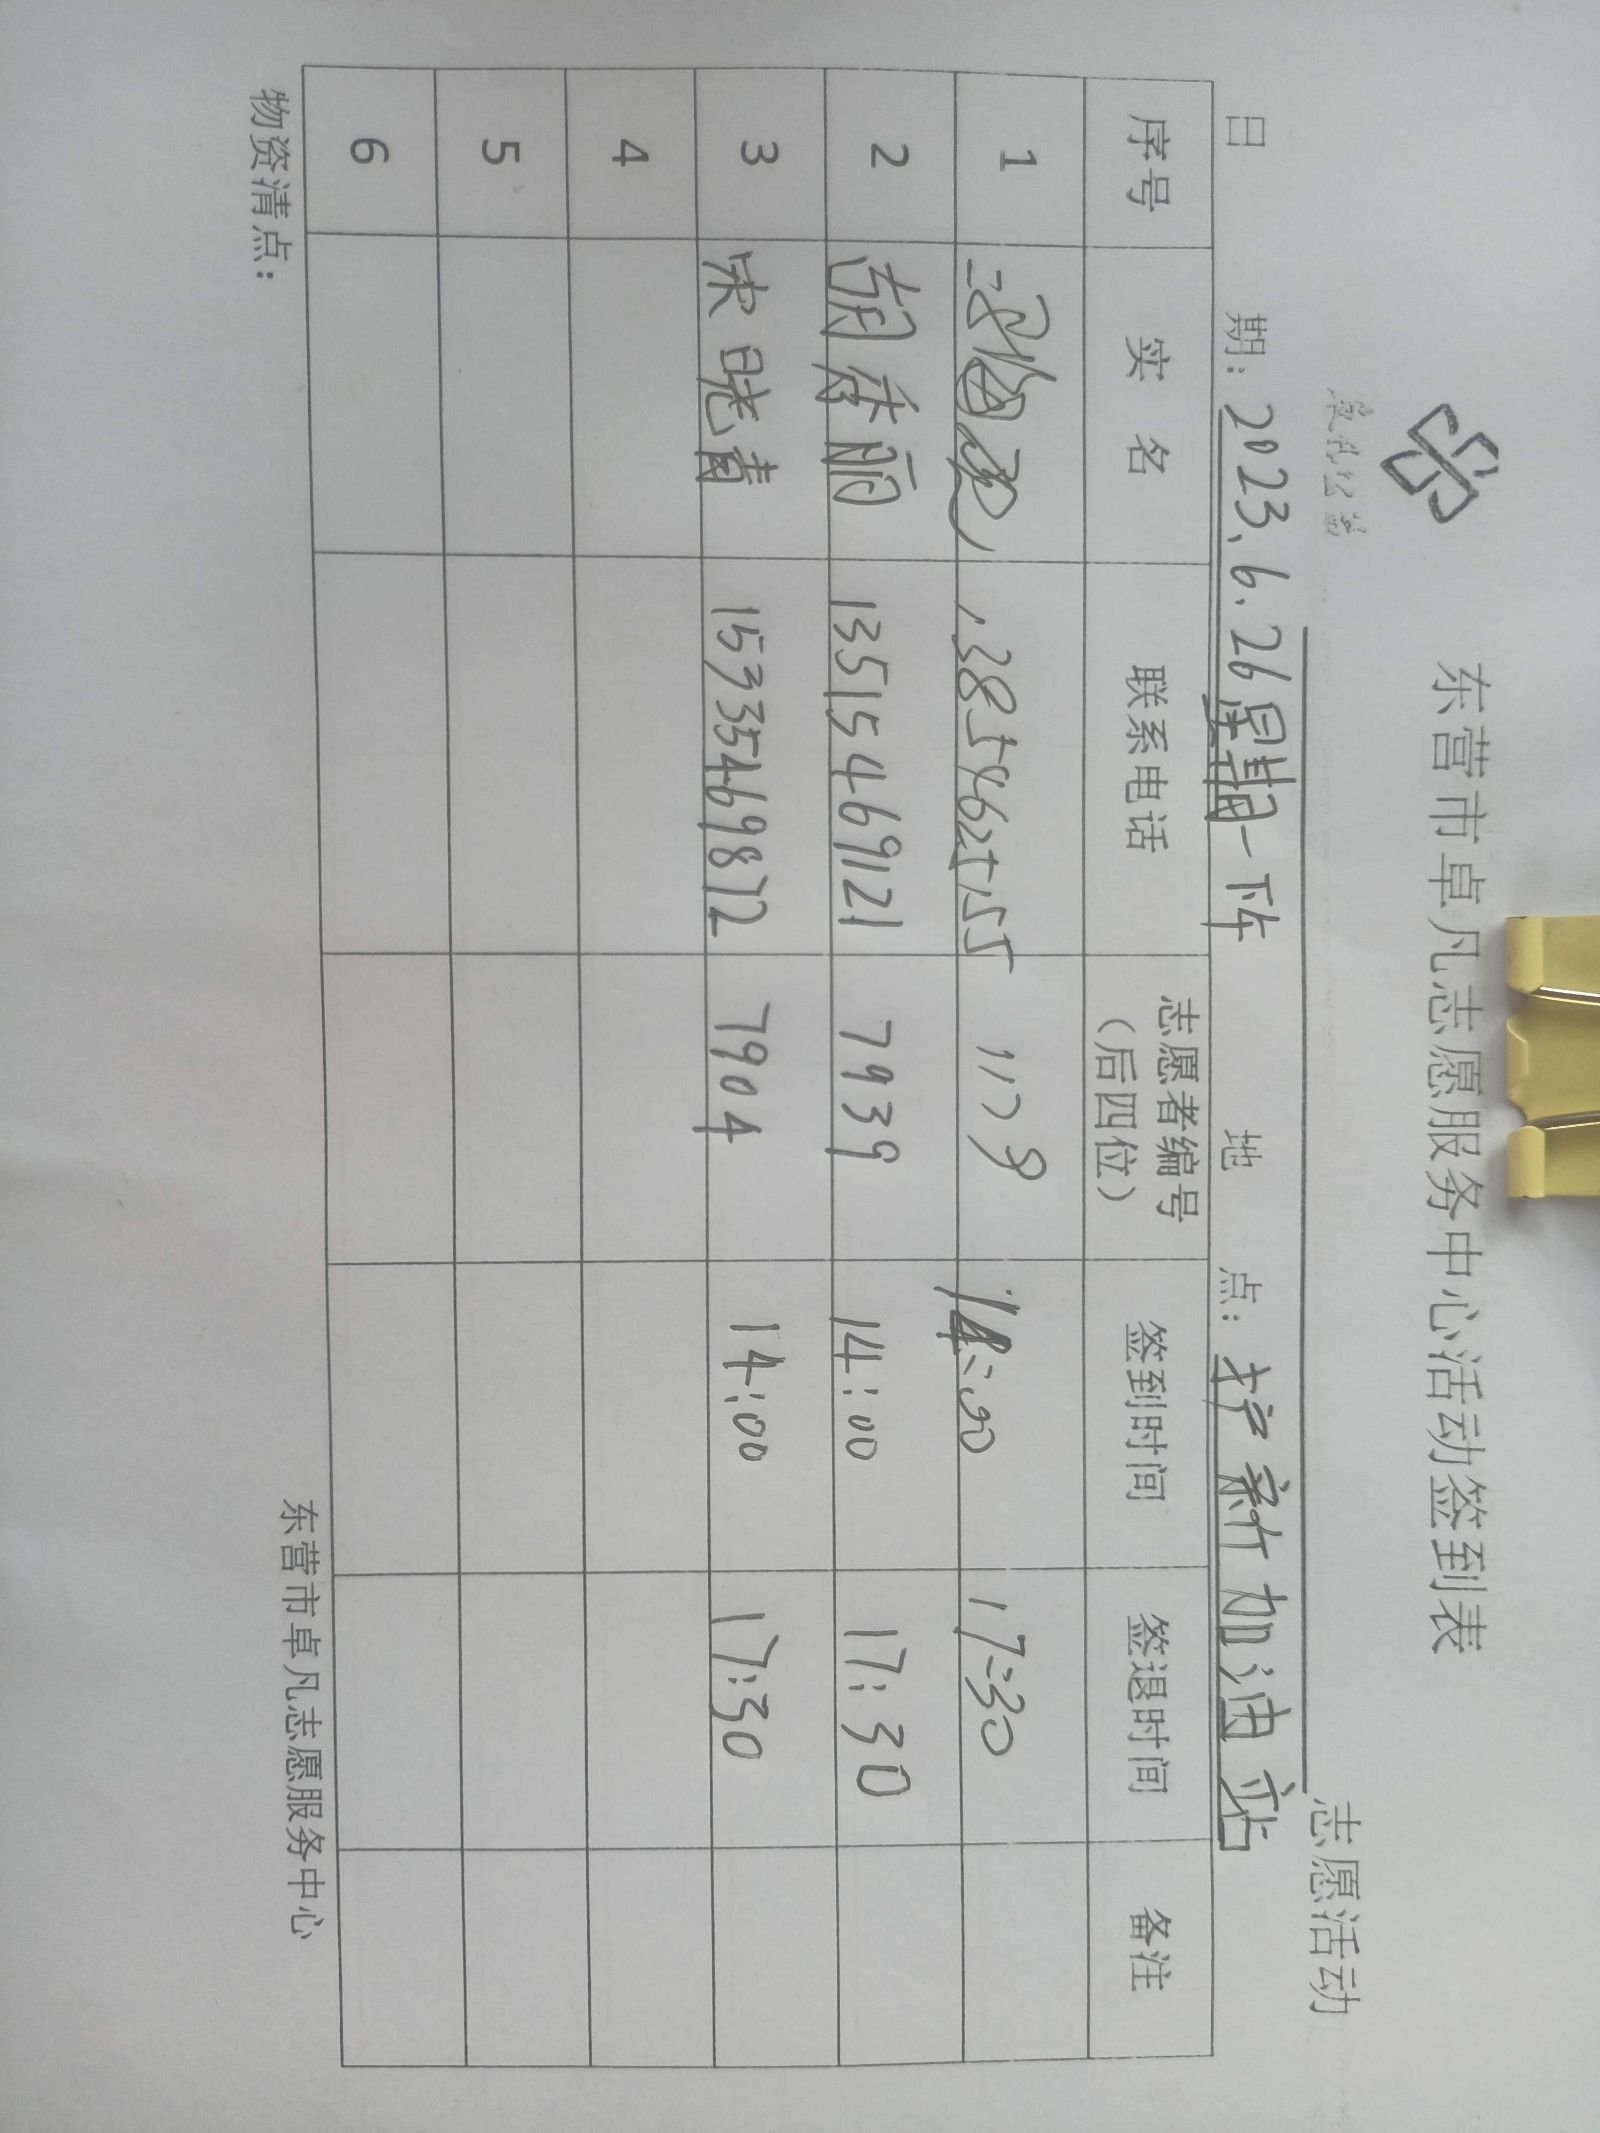 东营市卓凡志愿服务中心活动签到表
志愿活动
日 期: 2023.6.26星期一下午 地 点: 护新加油站
序号 实 名 联系电话 志愿者编号(后四位) 签到时间 签退时间 备注
1 14:00 17:30
2 胡秀丽 13515469121 7939 14:00 17:30
3 宋晓青 15335469872 7904 14:00 17:30
4
5
6
物资清点:
东营市卓凡志愿服务中心